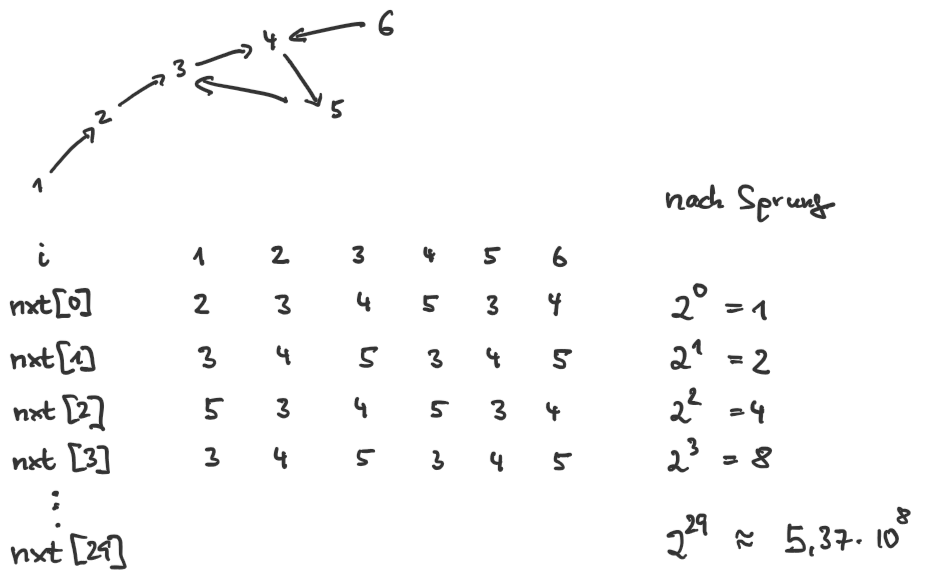 6
4
3
5
2
1
nach Sprung
i 1 2 3 4 5 6
nxt[0] 2 3 4 5 3 4 2⁰ = 1
nxt[1] 3 4 5 3 4 5 2¹ = 2
nxt[2] 5 3 4 5 3 4 2² = 4
nxt[3] 3 4 5 3 4 5 2³ = 8
⋮
nxt[29] 2²⁹ ≈ 5,37·10⁸